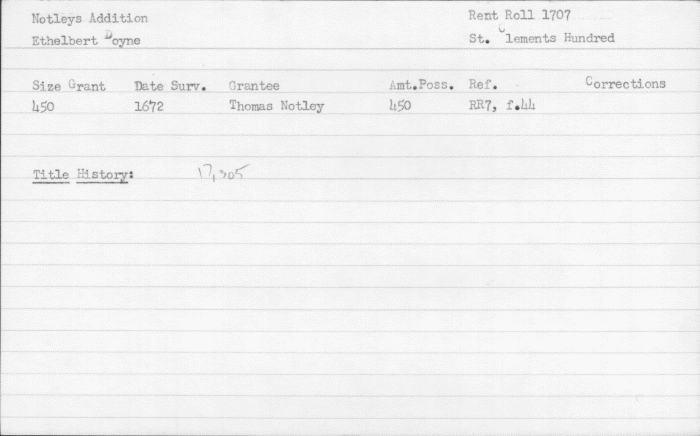 Notleys Addition Rent Roll 1707
Ethelbert Doyne St. Clements Hundred
Size Grant Date Surv. Grantee Amt.Poss. Ref. Corrections
450 1672 Thomas Notley 450 RR7, f.44
Title History: 17,305